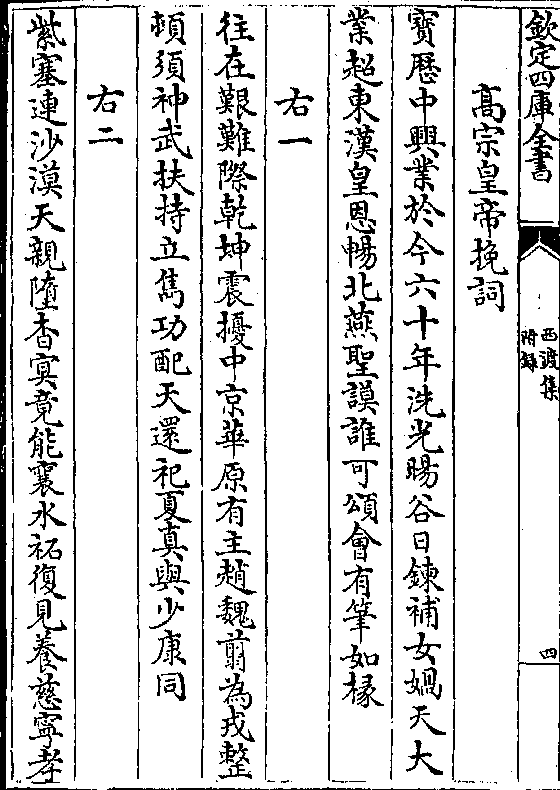 欽定四庫全書
西渡集
附錄
四
高宗皇帝挽詞
寳歴中興業於今六十年洗光暘谷日鍊補女媧天大
業超東漢皇恩暢北燕聖謨誰可頌會有筆如椽
右一
往在艱難際乾坤震擾中京華原有主趙魏翦為戎整
頓須神武扶持立雋功配天還祀夏真與少康同
右二
紫塞連沙漠天親墮杳冥竟能襄水祏復見養慈寧孝